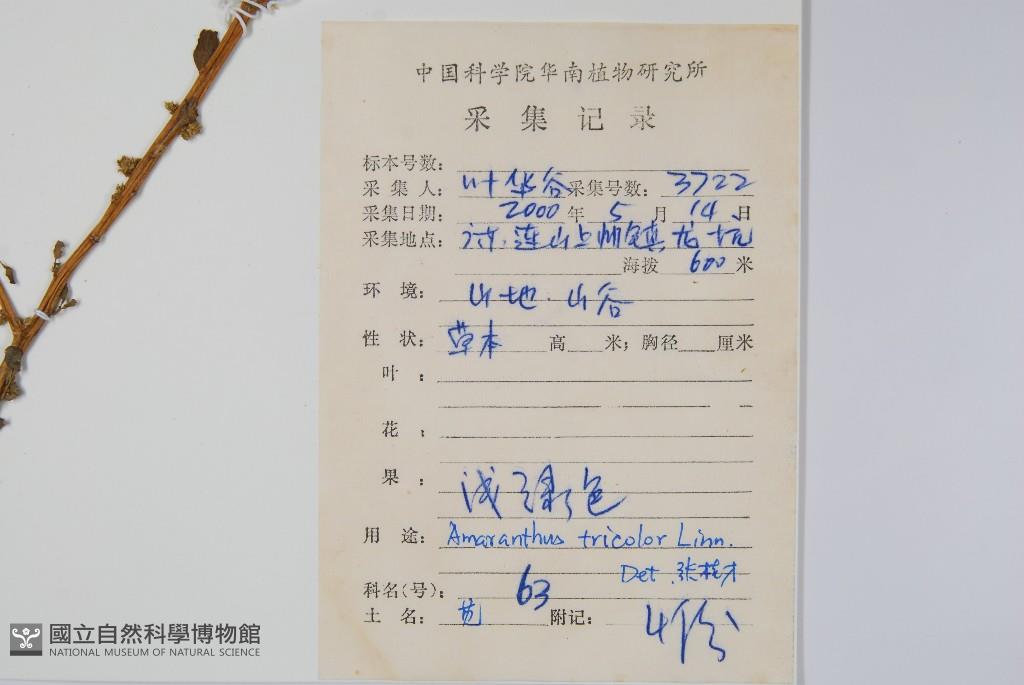 中国科学院华南植物研究所
采集记录
标本号数:
采集人: 叶华谷 采集号数: 3722
采集日期: 2000 年 5 月 14 日
采集地点: 连山上帅镇龙坑
海拨 600 米
环境: 山地.山谷
性状: 草本 高 米; 胸径 厘米
叶:
花:
果: 浅绿色
用途: Amaranthus tricolor Linn.
Det. 张桂才
科名(号): 63
土名: 苋 附记: 4份
國立自然科學博物館
NATIONAL MUSEUM OF NATURAL SCIENCE